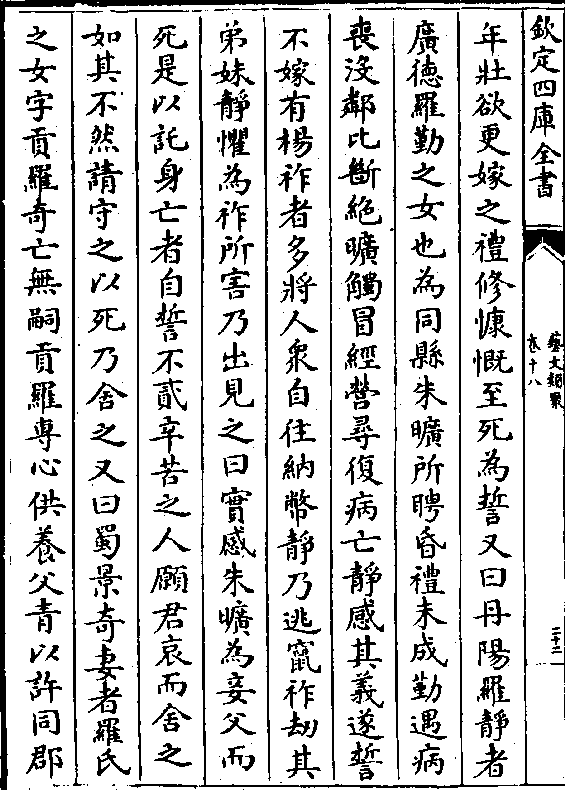 欽定四庫全書
藝文類聚
卷十八
二十二
年壯欲更嫁之禮修慷慨至死為誓又曰丹陽羅靜者
廣德羅勤之女也為同縣朱曠所聘昏禮未成勤遇病
喪沒鄰比斷絕曠觸冒經營尋復病亡靜感其義遂誓
不嫁有楊祚者多將人衆自往納幣靜乃逃竄祚劫其
弟妹靜懼為祚所害乃出見之曰實感朱曠為妾父而
死是以託身亡者自誓不貳辛苦之人願君哀而舍之
如其不然請守之以死乃舍之又曰蜀景奇妻者羅氏
之女字貢羅奇亡無嗣貢羅專心供養父青以許同郡